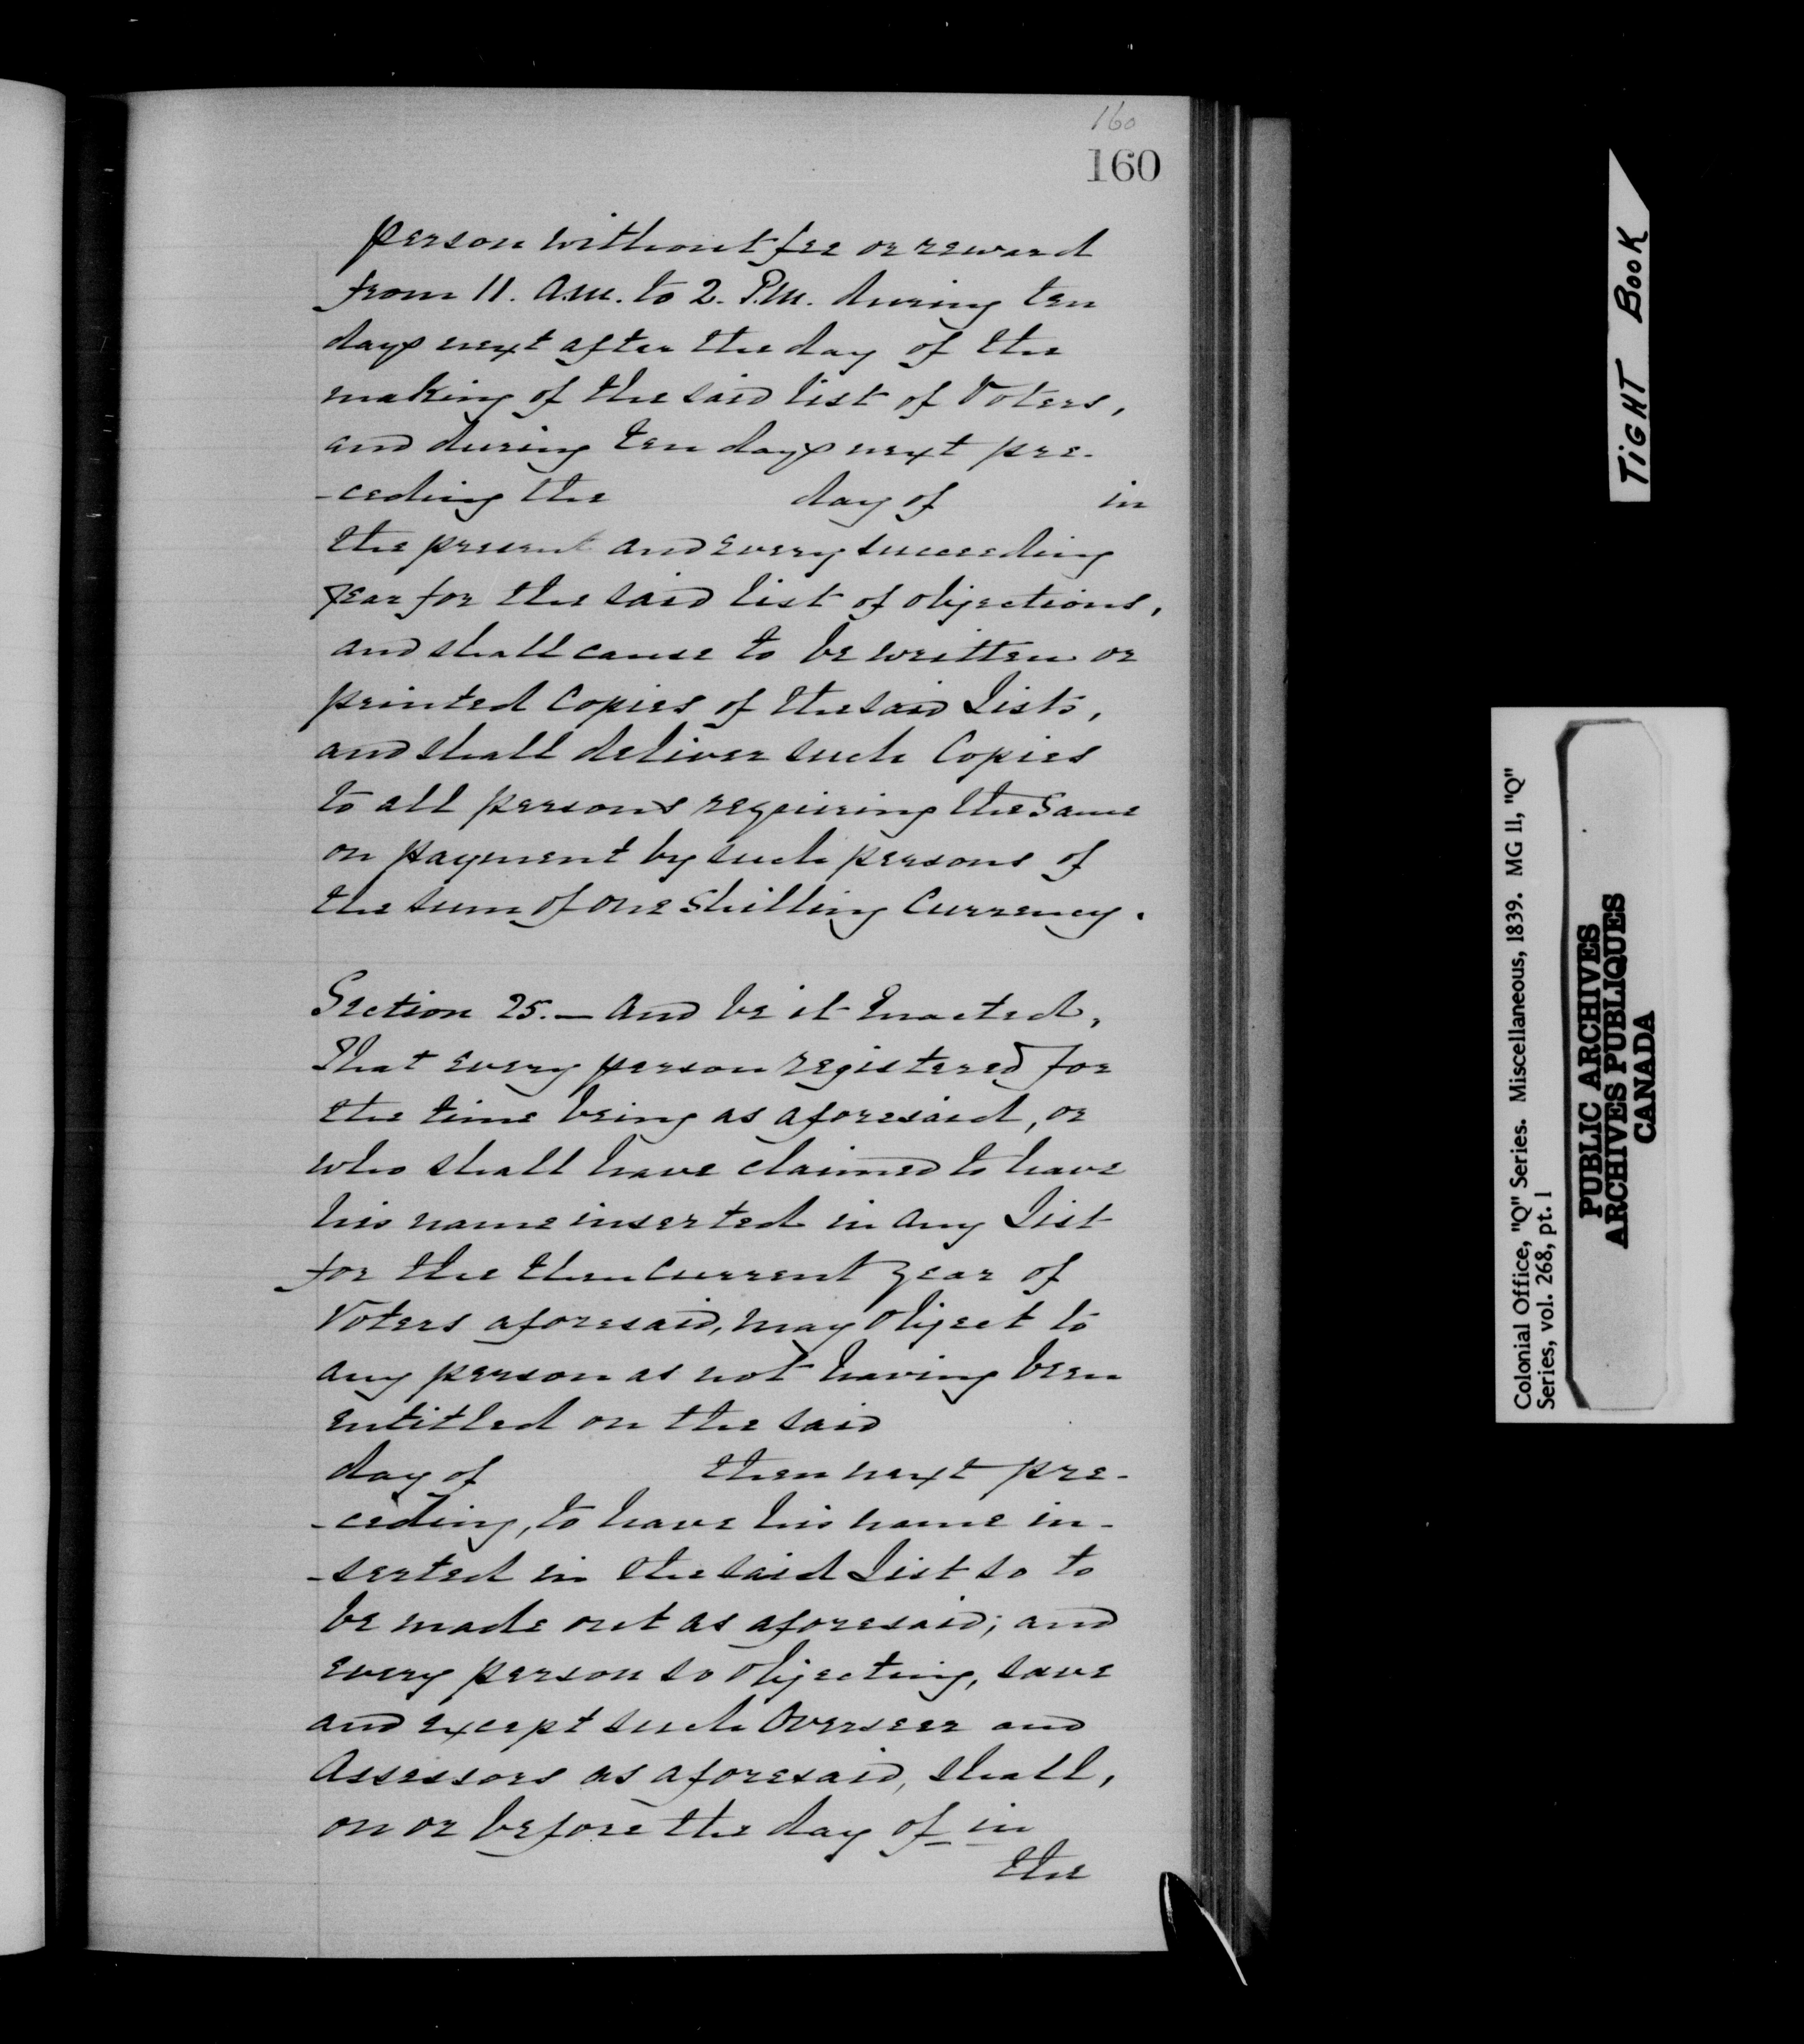 160
160
person without fee or reward
from 11. a.m. to 2. P.M. during ten
days next after the day of the
making of the said list of Voters,
and during ten days next pre-
-ceding the day of in
the present and every succeeding
year for the said list of objections,
and shall cause to be written or
printed Copies of the said Lists,
and shall deliver such Copies
to all persons requiring the same
on payment by such persons of
the sum of one Shilling Currency.
Section 25.— And be it Enacted,
That every person registered for
the time being as aforesaid, or
who shall have claimed to have
his name inserted in any List
for the then current year of
Voters aforesaid, may object to
any person as not having been
entitled on the said
day of then next pre-
-ceding, to have his name in-
-serted in the said List so to
be made out as aforesaid; and
every person so objecting, save
and except such Overseer and
Assessors as aforesaid, shall,
on or before the day of in
the
TIGHT BOOK
Colonial Office, "Q" Series. Miscellaneous, 1839. MG 11, "Q"
Series, vol. 268, pt. 1
PUBLIC ARCHIVES
ARCHIVES PUBLIQUES
CANADA